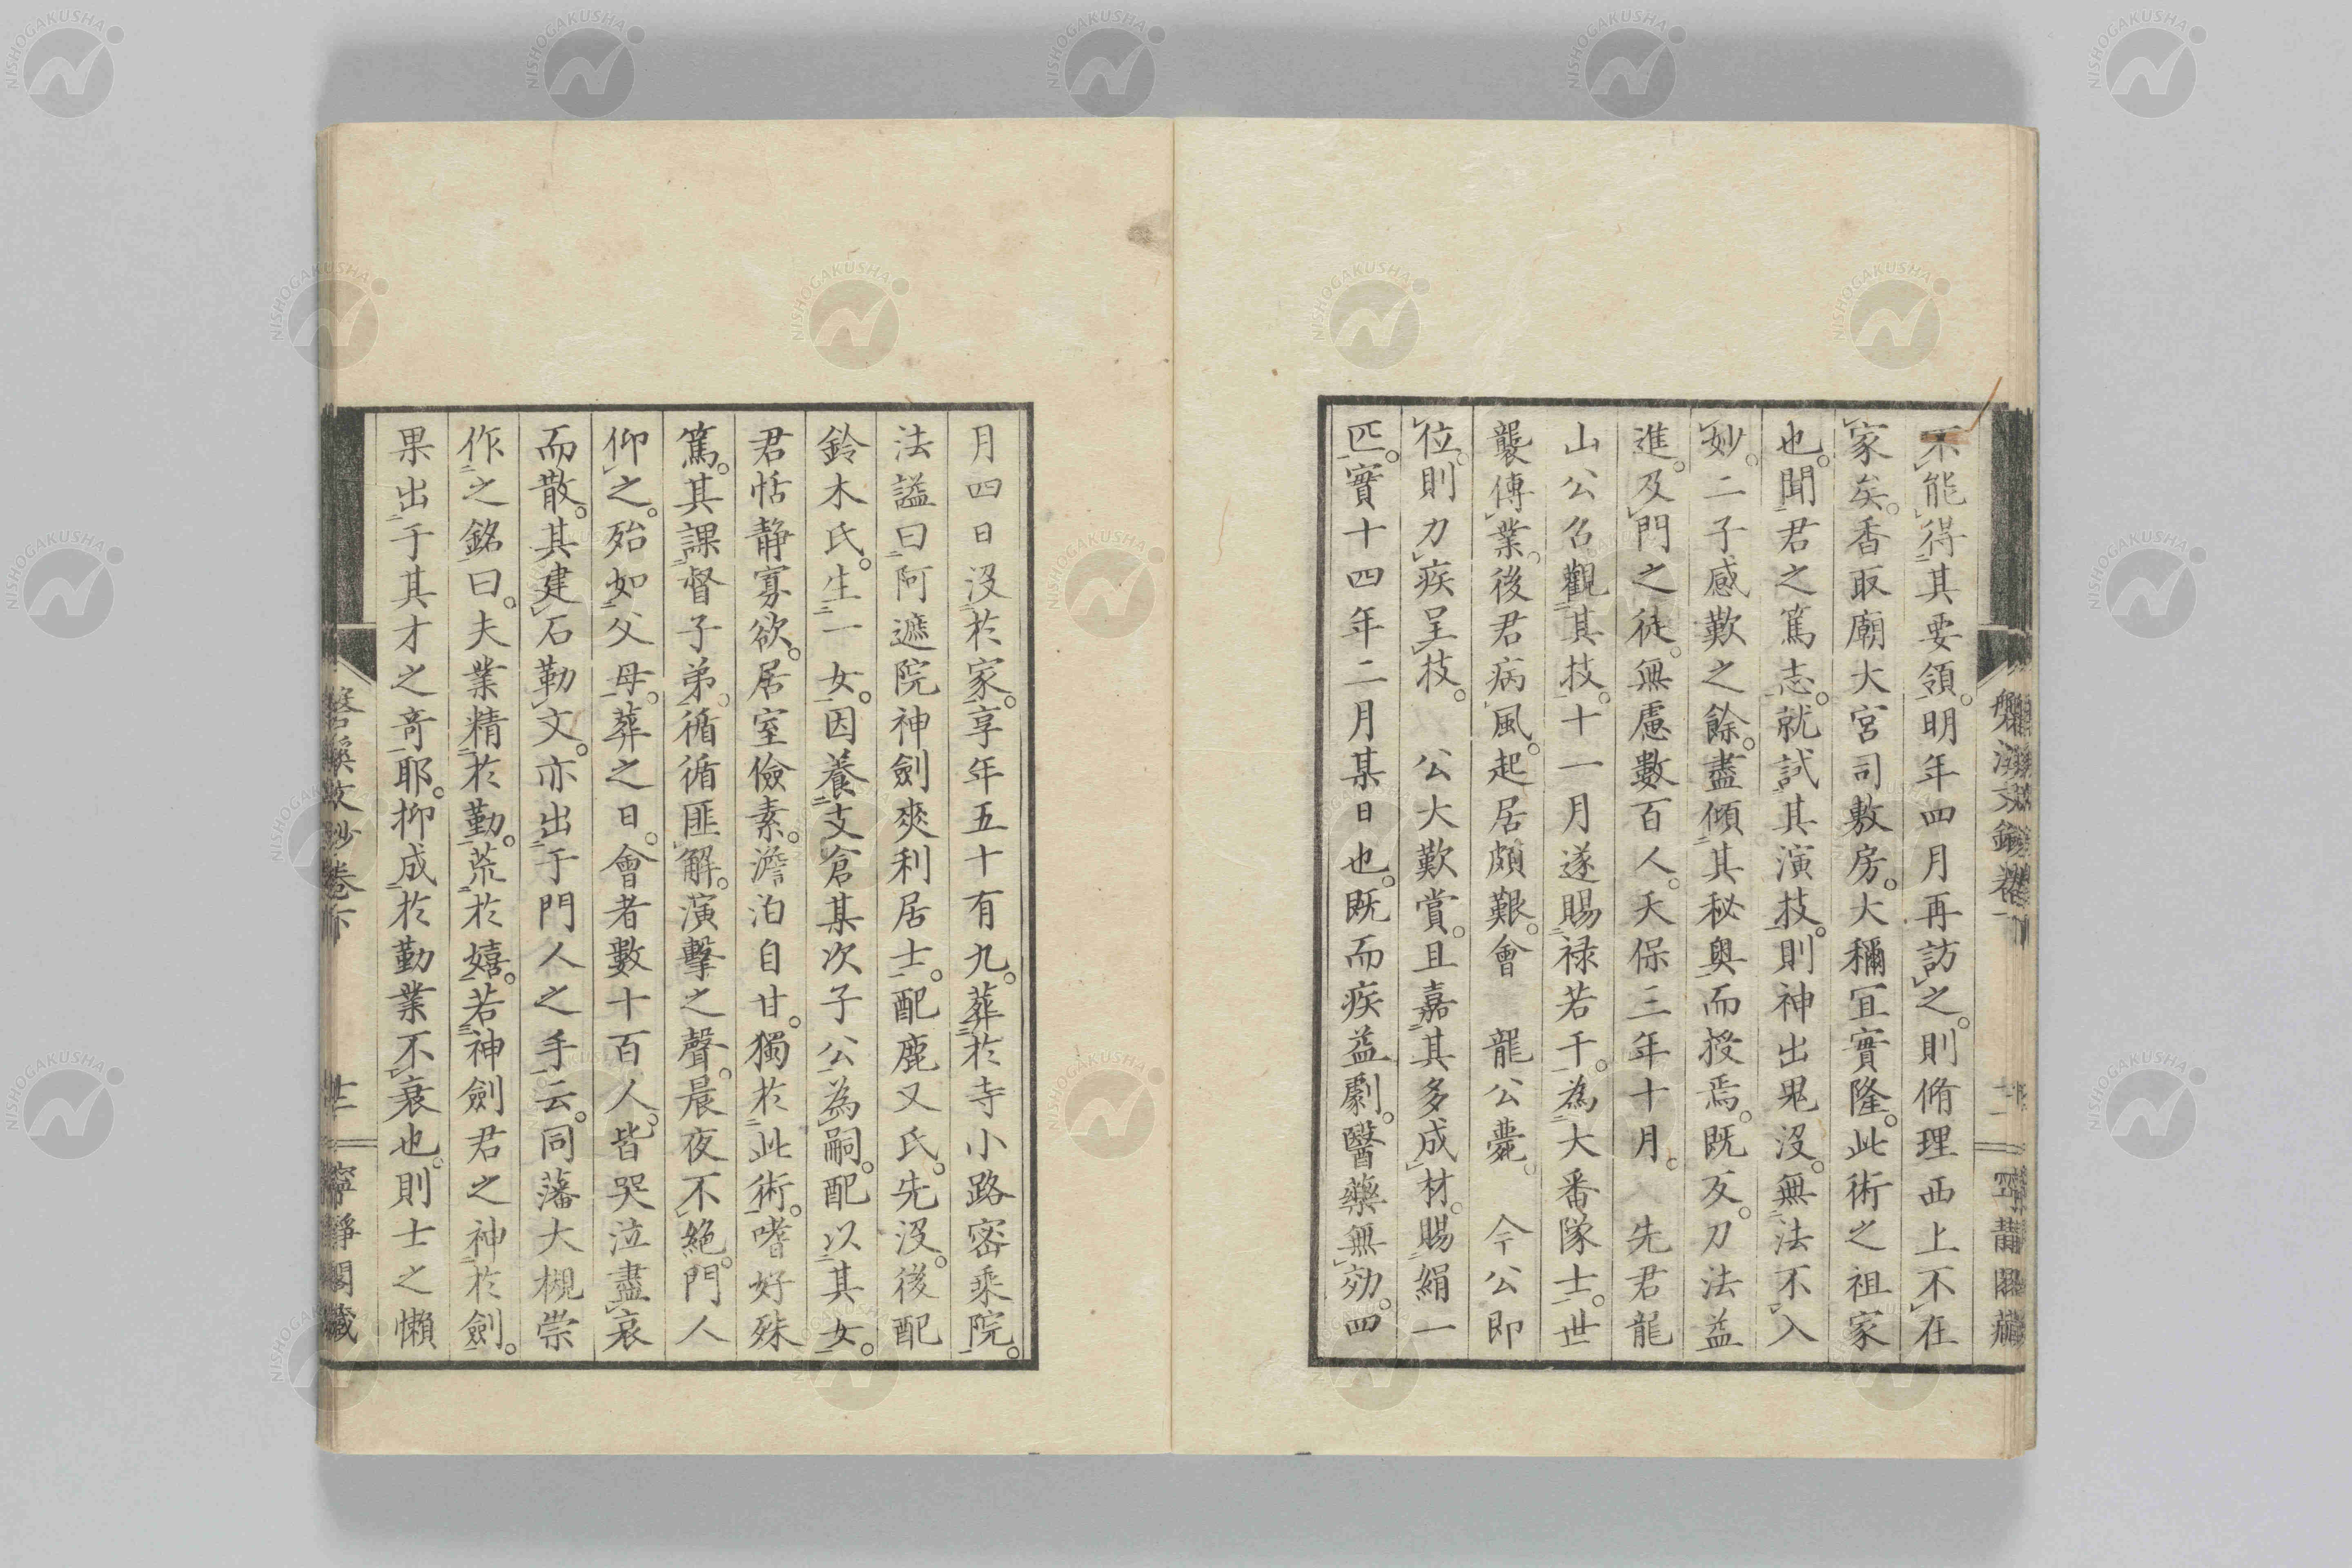 不能得其要領。明年四月再訪之。則脩理西上不在
家矣。香取廟大宮司敷房。大禰宜實隆。此術之祖家
也。聞君之篤志。就試其演技。則神出鬼沒。無法不入
妙。二子感歎之餘。盡傾其秘奥而授焉。既反。刀法益
進。及門之徒。無慮數百人。天保三年十月。先君龍
山公召觀其技。十一月遂賜禄若干。為大番隊士。世
襲傳業。後君病風。起居頗艱。會 龍公薨。 今公即
位。則力疾呈技。 公大歎賞。且嘉其多成材。賜絹一
匹。實十四年二月某日也。既而疾益劇。醫藥無効。四
月四日沒於家。享年五十有九。葬於寺小路密乘院。
法謚曰阿遮院神劍爽利居士。配鹿又氏。先沒。後配
鈴木氏。生一女。因養支倉某次子公為嗣。配以其女。
君恬静寡欲。居室儉素。澹泊自甘。獨於此術。嗜好殊
篤。其課督子弟。循循匪解。演擊之聲。晨夜不絶。門人
仰之。殆如父母。葬之日。會者數十百人。皆哭泣盡哀
而散。其建石勒文。亦出于門人之手云。同藩大槻崇
作之銘曰。夫業精於勤。荒於嬉。若神劍君之神於劍。
果出于其才之奇耶。抑成於勤業不衰也。則士之懶
磐溪文鈔卷下 廿二 寧靜閣藏
NISHOGAKUSHA